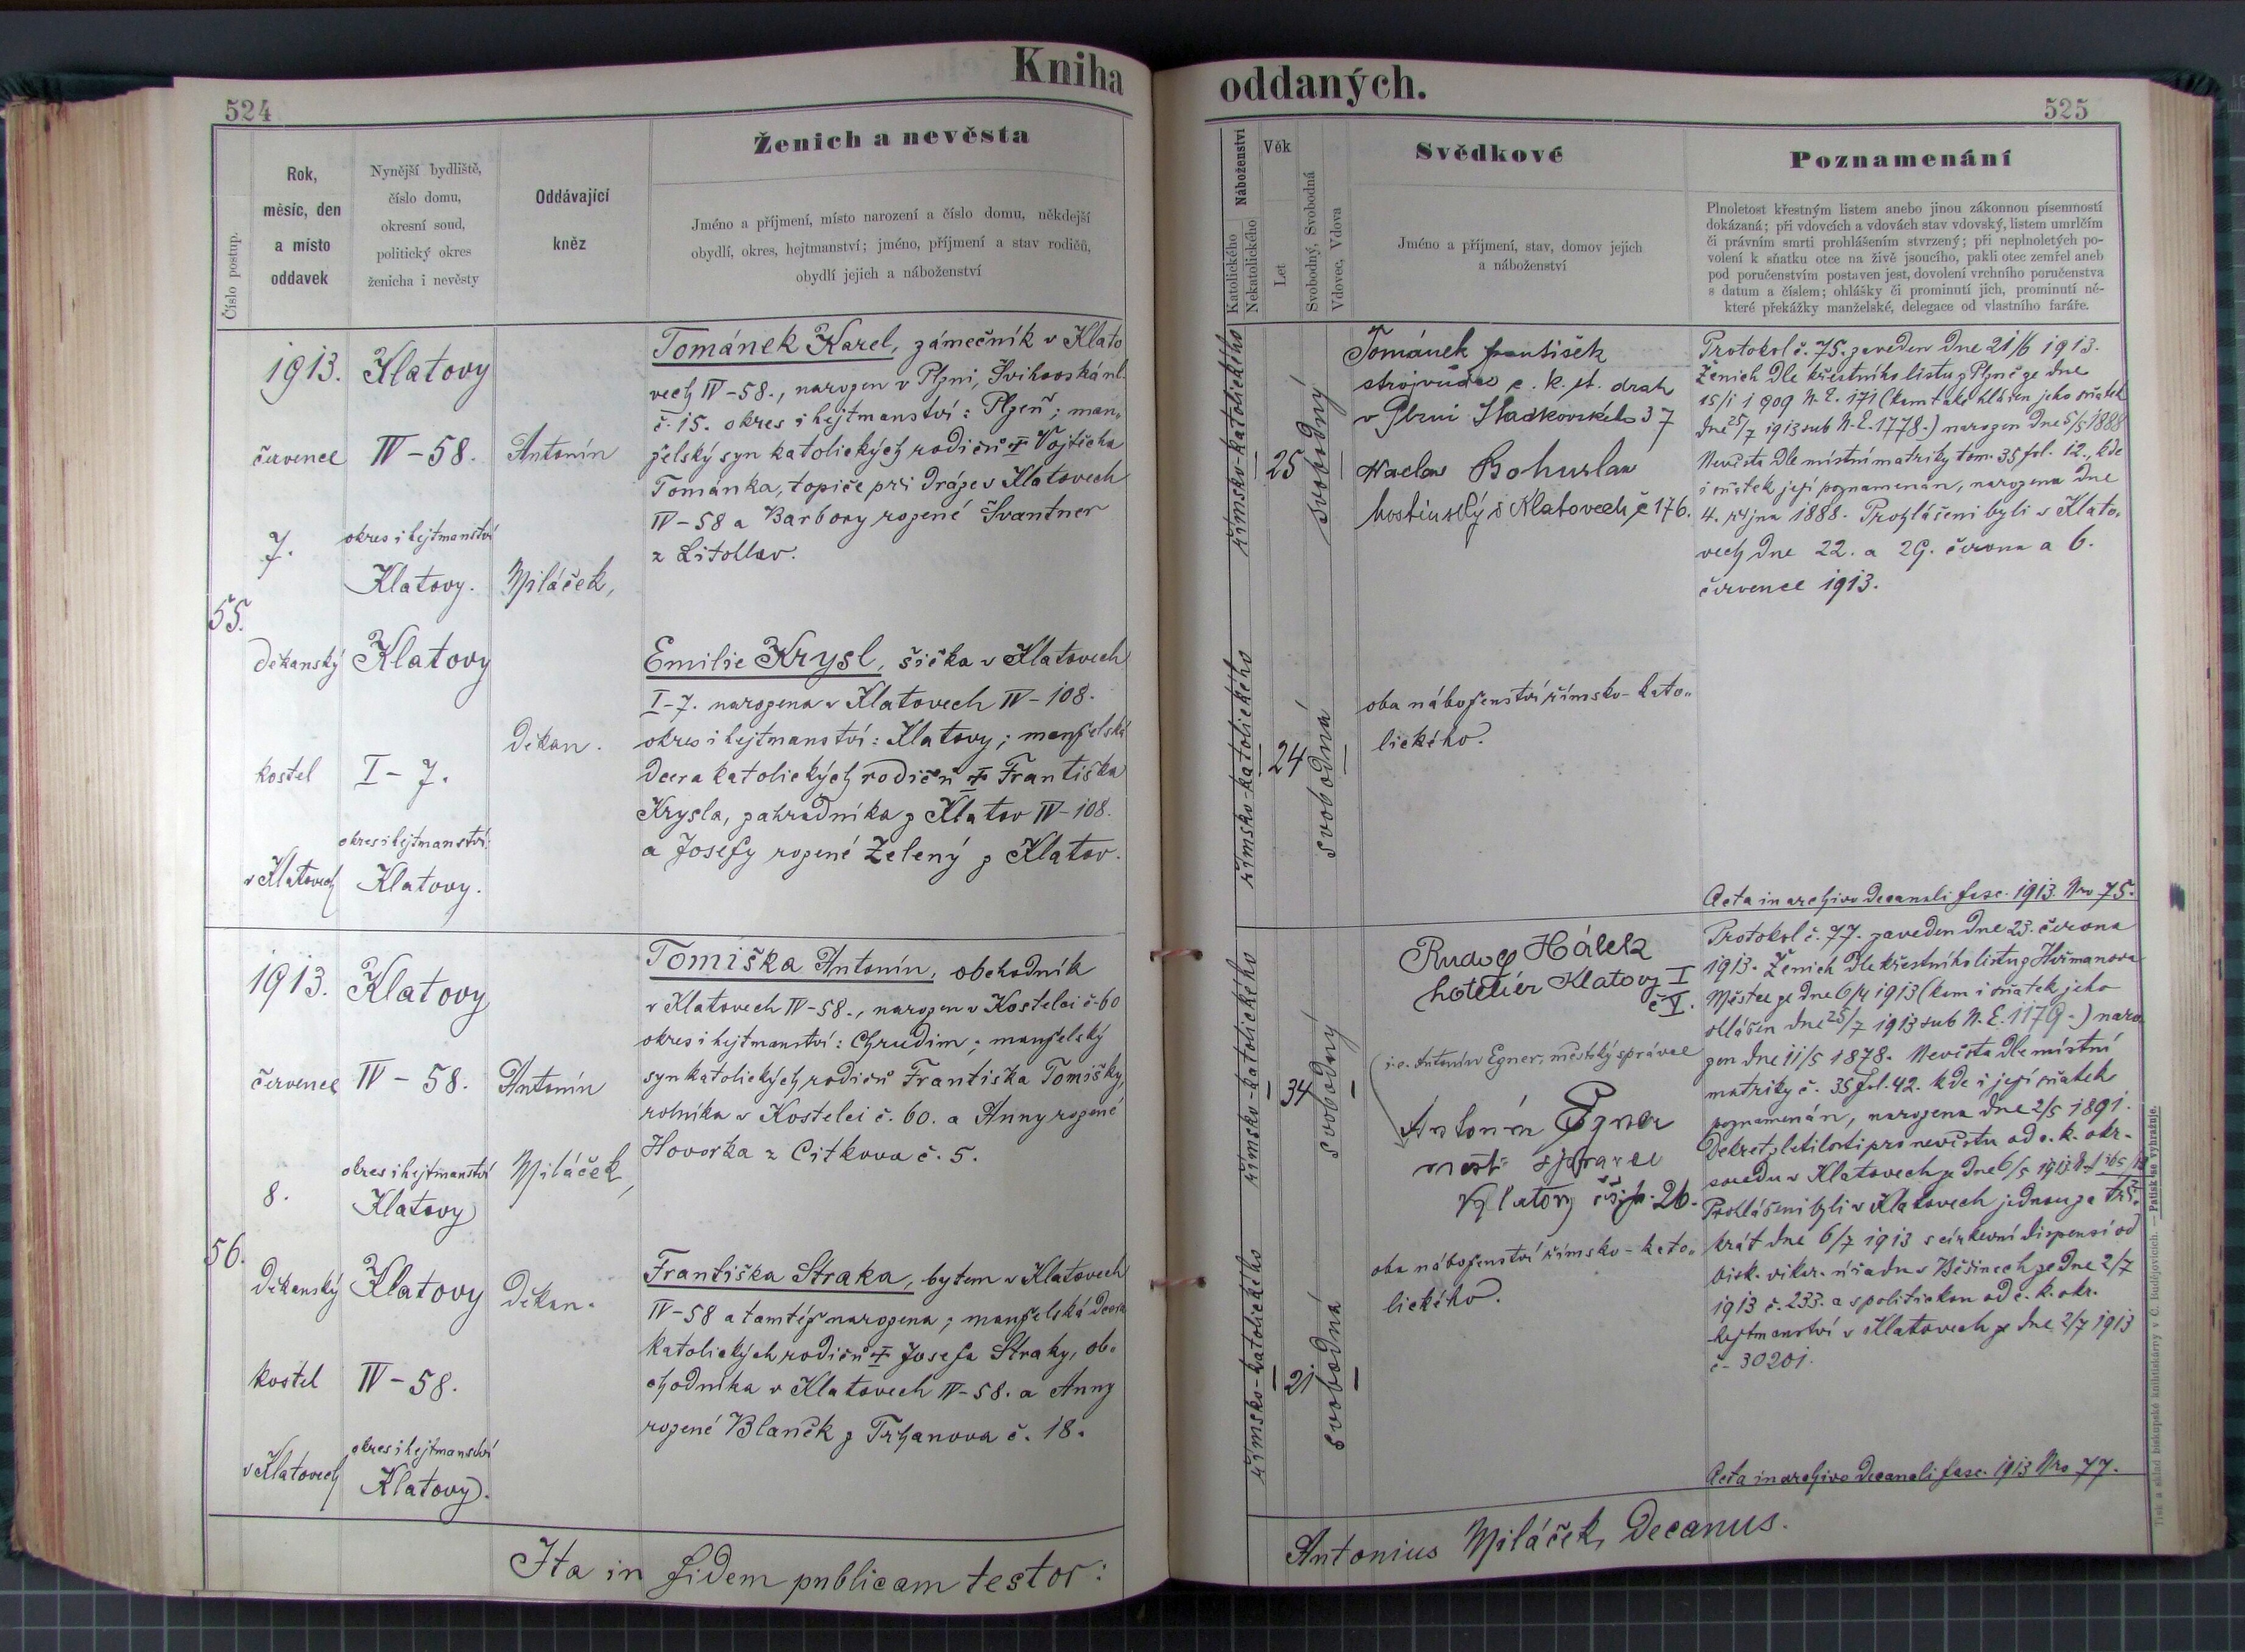 Kniha
524
Číslo postup.
Rok,
měsíc, den
a místo
oddavek
Nynější bydliště,
číslo domu,
okresní soud,
politický okres
ženicha i nevěsty
Oddávající
kněz
Ženich a nevěsta
Jméno a příjmení, místo narození a číslo domu, někdejší
obydlí, okres, hejtmanství; jméno, příjmení a stav rodičů,
obydlí jejich a náboženství
55.
1913.
července
7.
děkanský
kostel
v Klatovech
Klatovy
IV-58.
okres i hejtmanství
Klatovy.
Klatovy
I-7.
okres i hejtmanství:
Klatovy.
Antonín
Miláček,
děkan.
Tománek Karel, zámečník v Klato
vech IV-58., narozen v Plzni, Švihovská ul.
č. 15. okres i hejtmanství: Plzeň; man„
želský syn katolických rodičů ‡ Vojtěcha
Tománka, topiče při dráze v Klatovech
IV-58 a Barbory rozené Švantner
z Litohlav.
Emilie Krysl, šička v Klatovech
I-7. narozena v Klatovech IV-108.
okres i hejtmanství: Klatovy; manželská
dcera katolických rodičů ‡ Františka
Krysla, zahradníka z Klatov IV-108.
a Josefy rozené Zelený z Klatov.
56.
1913.
července
8.
děkanský
kostel
v Klatovech
Klatovy
IV-58.
okres i hejtmanství
Klatovy
Klatovy
IV-58.
okres i hejtmanství
Klatovy.
Antonín
Miláček,
děkan.
Tomiška Antonín, obchodník
v Klatovech IV-58., narozen v Kostelci č. 60
okres i hejtmanství: Chrudim; manželský
syn katolických rodičů Františka Tomišky,
rolníka v Kostelci č. 60. a Anny rozené
Hovorka z Citkova č. 5.
Františka Straka, bytem v Klatovech
IV-58 a tamtéž narozena; manželská dcera
katolických rodičů ‡ Josefa Straky, ob„
chodníka v Klatovech IV-58. a Anny
rozené Blaněk z Trhanova č. 18.
Ita in fidem publicam testor:
oddaných.
525
Náboženství
Katolického
Nekatolického
Věk
Let
Svobodný, Svobodná
Vdovec, Vdova
Svědkové
Jméno a příjmení, stav, domov jejich
a náboženství
Poznamenání
Plnoletost křestným listem anebo jinou zákonnou písemností
dokázaná; při vdovcích a vdovách stav vdovský, listem umrlčím
či právním smrti prohlášením stvrzený; při neplnoletých po-
volení k sňatku otce na živě jsoucího, pakli otec zemřel aneb
pod poručenstvím postaven jest, dovolení vrchního poručenstva
s datum a číslem; ohlášky či prominutí jich, prominutí ně-
které překážky manželské, delegace od vlastního faráře.
římsko-katolického
25
svobodný
římsko-katolického
24
svobodná
Tománek František
strojvůdce c. k. st. drah
v Plzni Hladkovského 37
Václav Bohuslav
hostinský v Klatovech č 176.
oba náboženství římsko-kato„
lického.
Protokol č. 75. zaveden dne 21/6 1913.
Ženich dle křestního listu z Plzně ze dne
15/1 1909 N. E. 171 (kam také hlášen jeho sňatek
dne 25/7 1913 sub N. E. 1778.) narozen dne 5/5 1888
Nevěsta dle místní matriky tom. 35 fol. 12., kde
i sňatek její poznamenán, narozena dne
4. října 1888. Prohlášeni byli v Klato„
vech dne 22. a 29. června a 6.
července 1913.
Acta in archivo decanali fasc. 1913. Nro 75.
římsko-katolického
34
svobodný
římsko-katolického
21
svobodná
Rudolf Hálek
hoteliér Klatovy I
č V.
(i.e. Antonín Egner, městský správce
Antonín Egner
měst. správce
Klatovy čp. 26.
oba náboženství římsko-kato„
lického.
Protokol č. 77. zaveden dne 23. června
1913. Ženich dle křestního listu z Heřmanova
Městce ze dne 6/4 1913 (kam i sňatek jeho
ohlášen dne 25/7 1913 sub N. E. 1179.) naro
zen dne 11/5 1878. Nevěsta dle místní
matriky č. 35 fol. 42. kde i její sňatek
poznamenán, narozena dne 2/5 1891.
Dekret zletilosti pro nevěstu od c. k. okr.
soudu v Klatovech ze dne 6/5 1913
Prohlášeni byli v Klatovech jednou za tři„
krát dne 6/7 1913 s církevní dispensí od
bisk. vikar. úřadu v Běšinech ze dne 2/7
1913 č. 233. a s politickou od c. k. okr.
hejtmanství v Klatovech ze dne 2/7 1913
č. 30201.
Acta in archivo decanali fasc. 1913 Nro 77.
Antonius Miláček, Decanus.
Tisk a sklad biskupské knihtiskárny v Č. Budějovicích. — Patisk se vyhražuje.